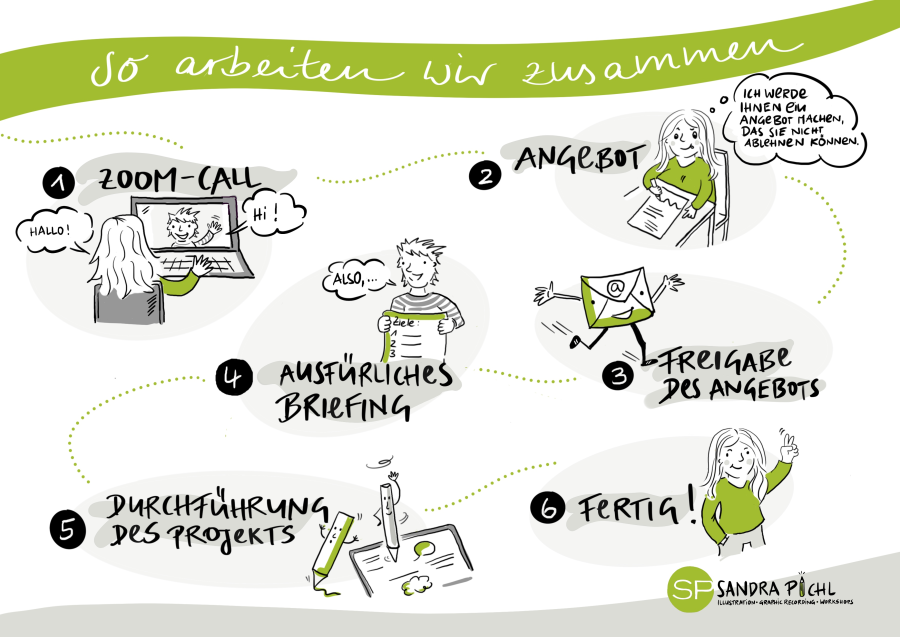 So arbeiten wir zusammen
1 ZOOM-CALL
HALLO!
Hi!
2 ANGEBOT
ICH WERDE
IHNEN EIN
ANGEBOT MACHEN,
DAS SIE NICHT
ABLEHNEN KÖNNEN.
@
3 FREIGABE
DES ANGEBOTS
ALSO,...
Ziele:
1
2
3
4 AUSFÜRLICHES
BRIEFING
5 DURCHFÜHRUNG
DES PROJEKTS
6 FERTIG!
SP SANDRA PICHL
ILLUSTRATION • GRAPHIC RECORDING • WORKSHOPS